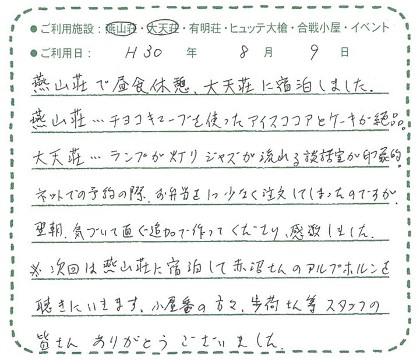 ●ご利用施設:燕山荘・大天荘・有明荘・ヒュッテ大槍・合戦小屋・イベント
●ご利用日: H30 年 8 月 9 日
燕山荘で昼食休憩、大天荘に宿泊しました。
燕山荘…チョコキューブを使ったアイスココアとケーキが絶品。
大天荘…ランプが灯りジャズが流れる談話室が印象的
ネットでの予約の際、お弁当を1つ少なく注文してしまったのですが
翌朝、気づいて直ぐ追加で作ってくださり、感激しました。
※次回は燕山荘に宿泊して赤沼さんのアルプホルンを
聴きにいきます。小屋番の方々、歩荷さん等スタッフの
皆さん ありがとうございました。